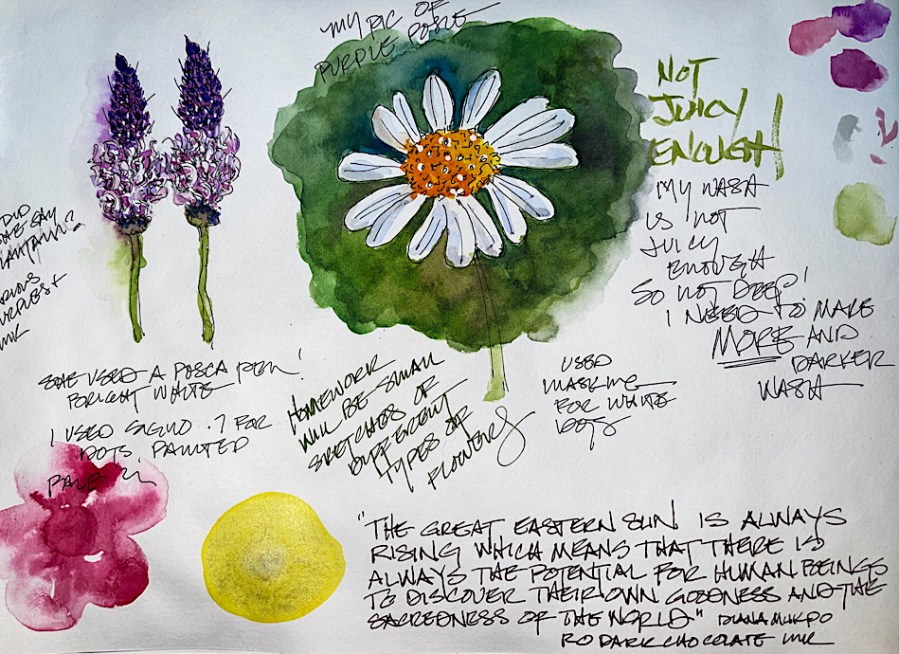 MY PIC OF
PURPLE
NOT
JUICY
ENOUGH
MY WASH
IS NOT
JUICY
ENOUGH
SO NOT DEEP!
I NEED TO MAKE
MORE AND
DARKER
WASH
DID
SHE SAY
VARIOUS
PURPLES +
INK
SHE USED A POSCA PEN!
BRIGHT WHITE
I USED SIGNO .7 FOR
DOTS, PAINTED
PALE
HOMEWORK
WILL BE SMALL
SKETCHES OF
DIFFERENT
TYPES OF
FLOWERS
USED
MASKING
FOR WHITE
"THE GREAT EASTERN SUN IS ALWAYS
RISING WHICH MEANS THAT THERE IS
ALWAYS THE POTENTIAL FOR HUMAN BEINGS
TO DISCOVER THEIR OWN GOODNESS AND THE
SACREDNESS OF THE WORLD" DIANA MUKPO
RO DARK CHOCOLATE INK